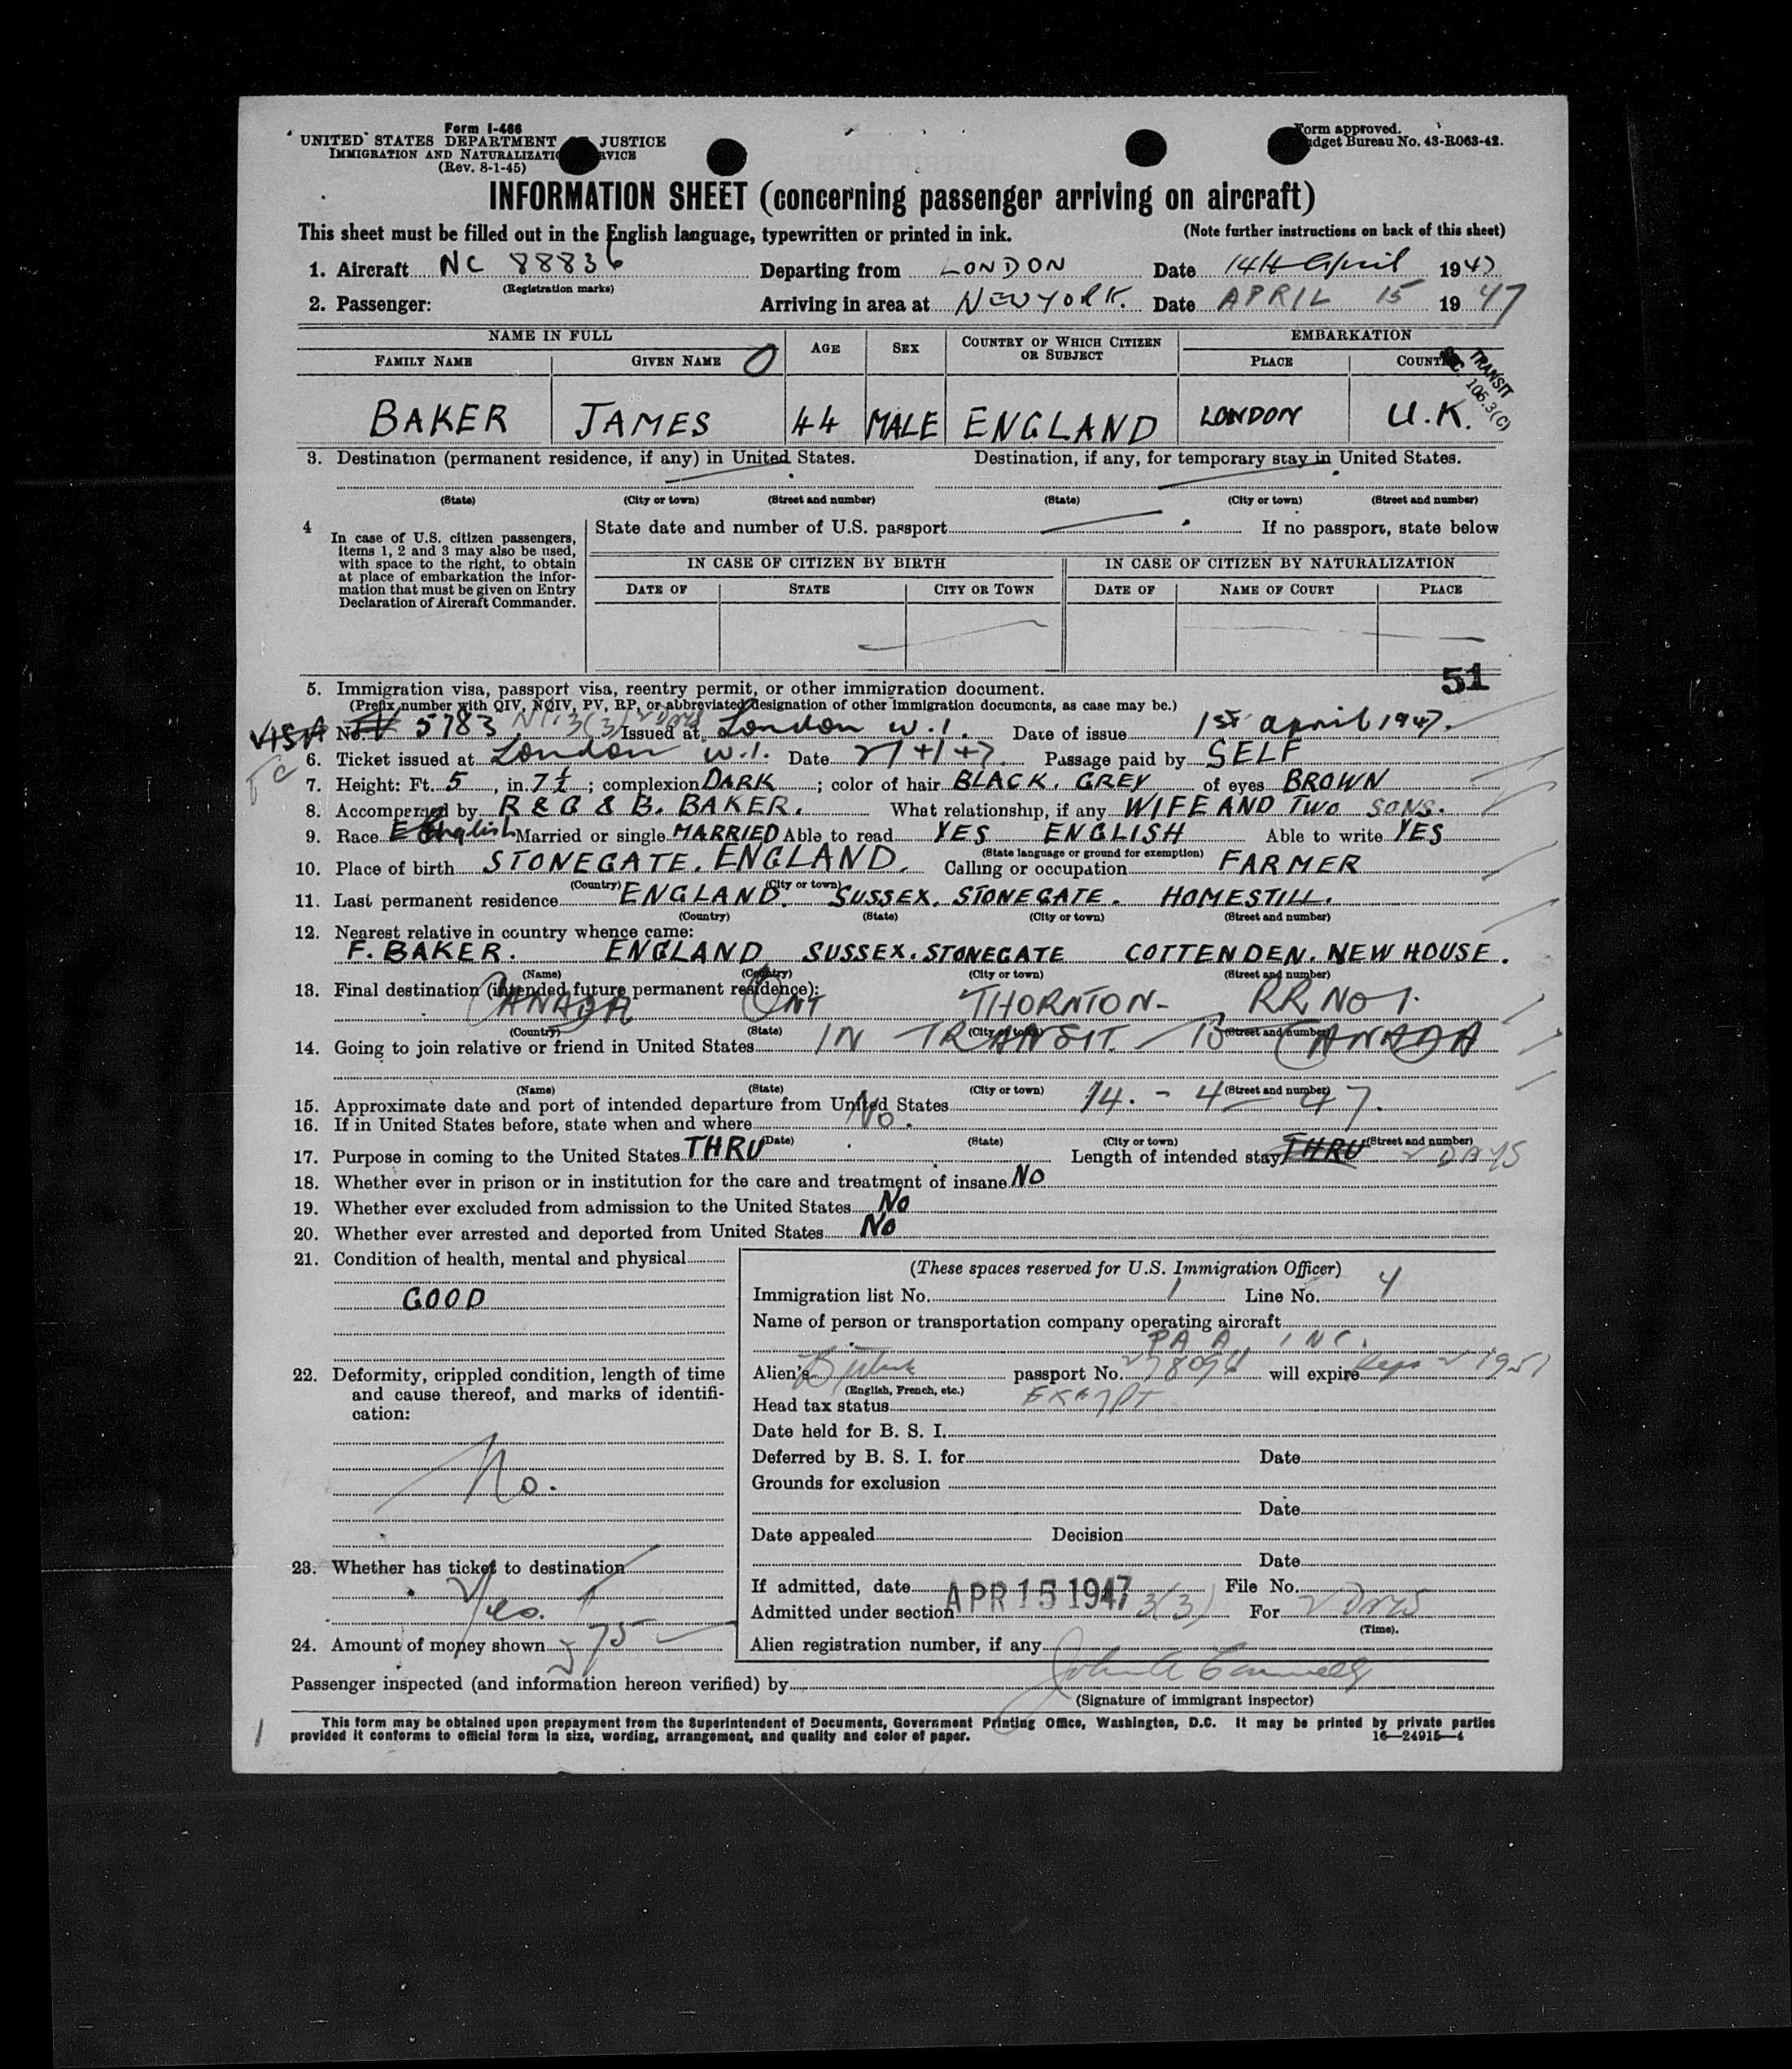 Form I-466
UNITED STATES DEPARTMENT JUSTICE
IMMIGRATION AND NATURALIZATIO RVICE
(Rev. 8-1-45)
Form approved.
dget Bureau No. 43-R063-42.
INFORMATION SHEET (concerning passenger arriving on aircraft)
This sheet must be filled out in the English language, typewritten or printed in ink. (Note further instructions on back of this sheet)
1. Aircraft NC 88836 Departing from LONDON Date 14th April 1947
(Registration marks)
2. Passenger: Arriving in area at NEW YORK. Date APRIL 15 1947
NAME IN FULL EMBARKATION
FAMILY NAME GIVEN NAME AGE SEX COUNTRY OF WHICH CITIZEN OR SUBJECT PLACE COUNT
TRANSIT
106.3(C)
BAKER JAMES 44 MALE ENGLAND LONDON U.K.
3. Destination (permanent residence, if any) in United States. Destination, if any, for temporary stay in United States.
(State) (City or town) (Street and number) (State) (City or town) (Street and number)
4 In case of U.S. citizen passengers, items 1, 2 and 3 may also be used, with space to the right, to obtain at place of embarkation the information that must be given on Entry Declaration of Aircraft Commander.
State date and number of U.S. passport If no passport, state below
IN CASE OF CITIZEN BY BIRTH IN CASE OF CITIZEN BY NATURALIZATION
DATE OF STATE CITY OR TOWN DATE OF NAME OF COURT PLACE
51
5. Immigration visa, passport visa, reentry permit, or other immigration document.
(Prefix number with QIV, NQIV, PV, RP, or abbreviated designation of other immigration documents, as case may be.)
VISA No. 5783 3(3) 2 DAYS Issued at London W.1. Date of issue 1st April 1947.
6. Ticket issued at London W.1. Date 2/4/47. Passage paid by SELF
7. Height: Ft. 5, in. 7½; complexion DARK; color of hair BLACK. GREY of eyes BROWN
8. Accompanied by R & G & B. BAKER. What relationship, if any WIFE AND TWO SONS.
9. Race English Married or single MARRIED Able to read YES ENGLISH Able to write YES
(State language or ground for exemption)
10. Place of birth STONEGATE. ENGLAND. Calling or occupation FARMER
(Country) (City or town)
11. Last permanent residence ENGLAND. SUSSEX. STONEGATE. HOMESTILL.
(Country) (State) (City or town) (Street and number)
12. Nearest relative in country whence came:
F. BAKER. ENGLAND SUSSEX. STONEGATE COTTENDEN. NEW HOUSE.
(Name) (Country) (City or town) (Street and number)
13. Final destination (intended future permanent residence):
CANADA ONT THORNTON- RR NO 1.
(Country) (State) (City or town) (Street and number)
14. Going to join relative or friend in United States IN TRANSIT TO CANADA
(Name) (State) (City or town) (Street and number)
15. Approximate date and port of intended departure from United States 14. - 4 - 47.
16. If in United States before, state when and where No.
(Date) (State) (City or town) (Street and number)
17. Purpose in coming to the United States THRU Length of intended stay THRU 2 DAYS
18. Whether ever in prison or in institution for the care and treatment of insane NO
19. Whether ever excluded from admission to the United States NO
20. Whether ever arrested and deported from United States NO
21. Condition of health, mental and physical
GOOD
22. Deformity, crippled condition, length of time and cause thereof, and marks of identification:
No.
23. Whether has ticket to destination
Yes.
24. Amount of money shown $75
(These spaces reserved for U.S. Immigration Officer)
Immigration list No. 1 Line No. 4
Name of person or transportation company operating aircraft
PAA INC.
Alien's British passport No. will expire 1951
(English, French, etc.)
Head tax status EXEMPT
Date held for B. S. I.
Deferred by B. S. I. for Date
Grounds for exclusion
Date
Date appealed Decision
Date
If admitted, date APR 15 1947 File No.
Admitted under section 3(3) For 2 DAYS
(Time).
Alien registration number, if any
Passenger inspected (and information hereon verified) by John A
(Signature of immigrant inspector)
This form may be obtained upon prepayment from the Superintendent of Documents, Government Printing Office, Washington, D.C. It may be printed by private parties
provided it conforms to official form in size, wording, arrangement, and quality and color of paper. 16—24915-4